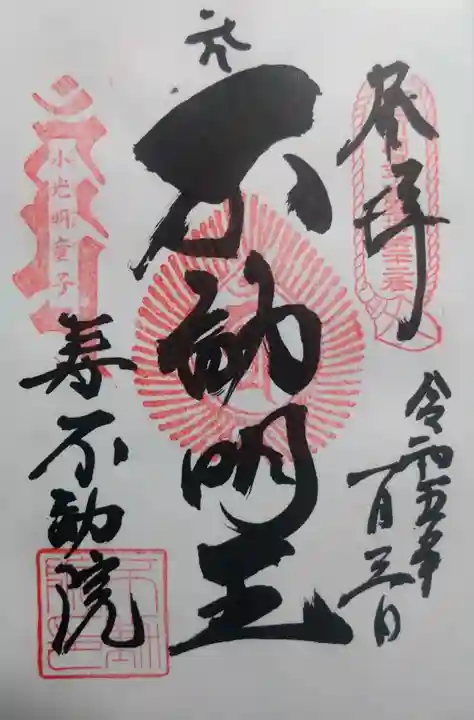 奉拝
令和五年
一月三日
不動明王
小光明童子
寿不動院